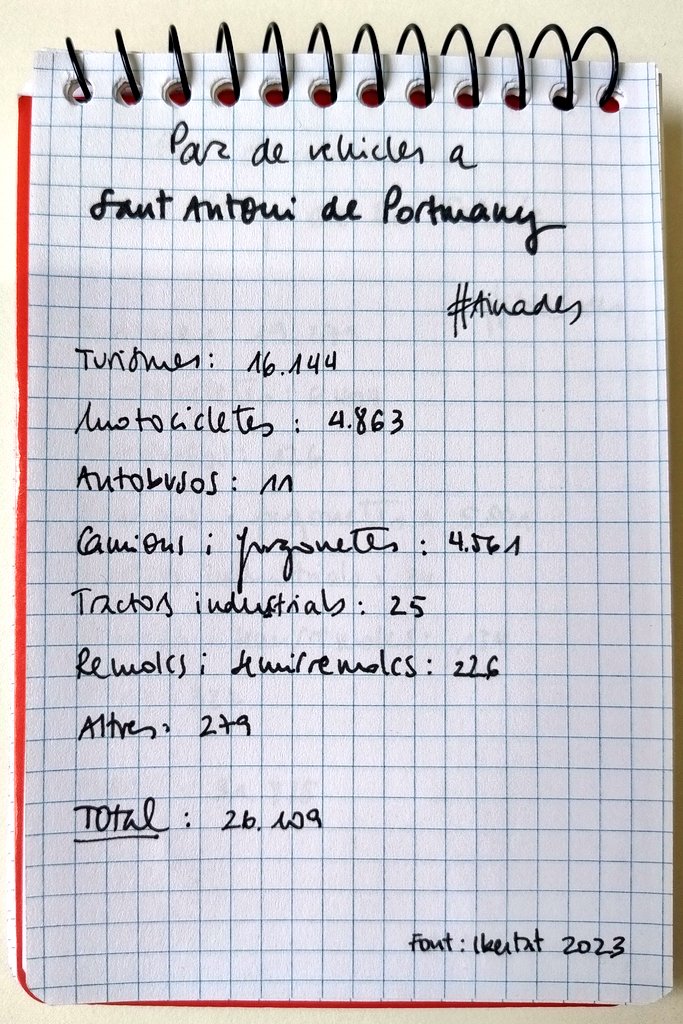 Parc de vehicles a
Sant Antoni de Portmany
#Ainades
Turismes: 16.144
Motocicletes: 4.863
Autobusos: 11
Camions i furgonetes: 4.561
Tractors industrials: 25
Remolcs i semirremolcs: 226
Altres: 279
Total: 26.109
Font: Ibestat 2023